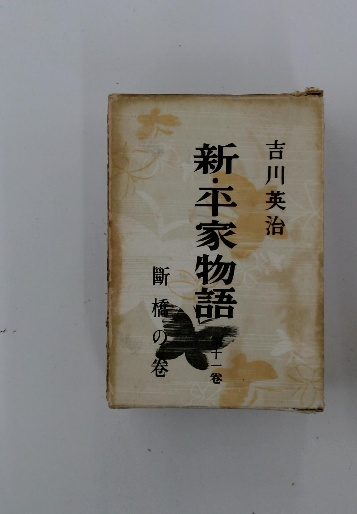 吉川英治
新・平家物語
十一卷
斷橋の卷